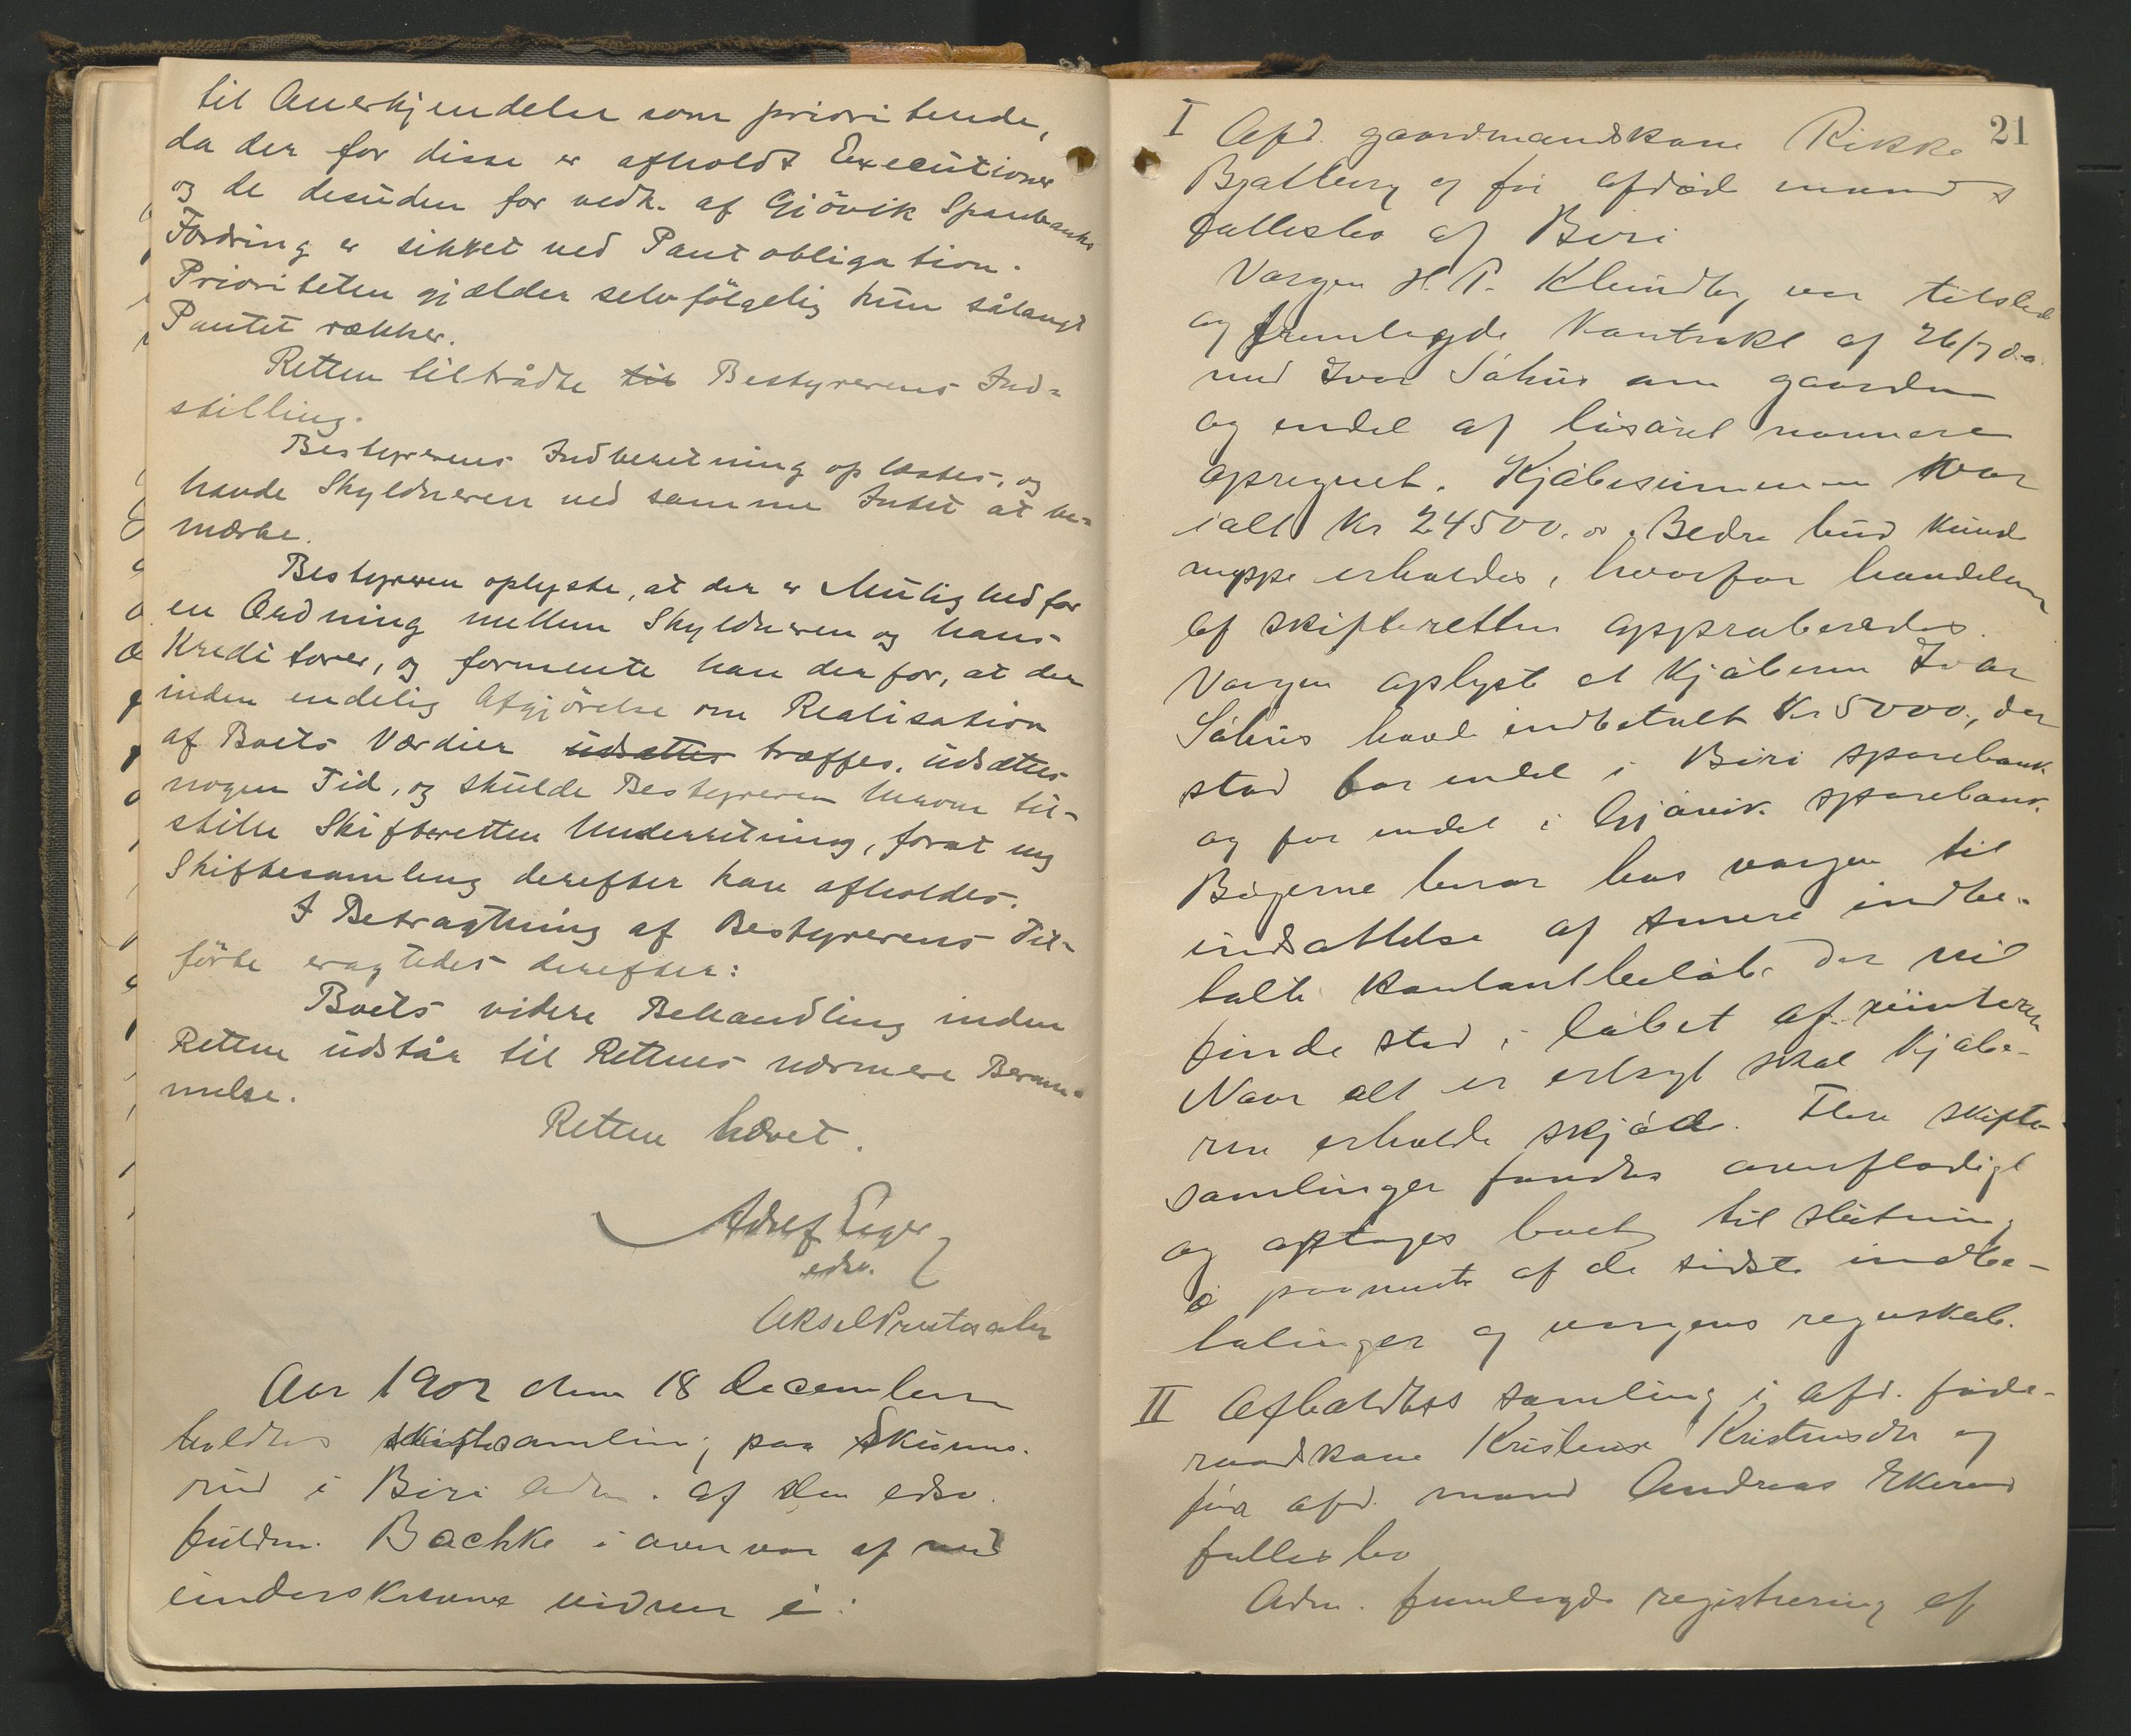 til Anerkjendelse som prioriterede,
da der for disse er afholdt Executioner
og de desuden for vedk. af Gjövik Sparebanks
Fordring er sikket ved Pantobligation.
Prioriteten gjælder selvfölgelig kun sålangt
Pantet rækker.
Retten tiltrådte til Bestyrerens Ind=
stilling.
Bestyrerens Indberetning oplæstes, og
havde Skyldneren ved samme Intet at be=
mærke.
Bestyreren oplyste, at der er Mulighed for
en Ordning mellem Skyldneren og hans
Kreditorer, og formente han derfor, at der
inden endelig Afgjörelse om Realisation
af Boets Værdier udsættes træffes, udsættes
nogen Tid, og skulde Bestyreren herom til=
stille Skifteretten Underretning, forat ny
Skiftesamling derefter kan afholdes.
I Betragtning af Bestyrerens Til=
förte eragtedes derefter:
Boets videre Behandling inden
Retten udstår til Rettens nærmere Beram=
melse.
Retten hævet.
Adolf Eger
edsv.
Aksel
Aar 1902 den 18 december
holdtes skiftesamling paa Skums-
rud i Biri adm. af den edsv.
fuldm. Bachke i overvær af ved
underskrevne vidner i:
21
I Afd. gaardmandskone Rikke
Bratberg og før afdød mands
fællesbo af Biri
Vargen H. P. Klundby var tilstede
og fremlagde kontrakt af 26/7 d.a.
med Ivar Sáhus om gaarden
og endel af lösöret nærmere
opregnet. Kjöbesummen var
ialt Kr 24500.00. Bedre bud kunde
neppe erholdes, hvorfor handelen
af skifteretten approberedes.
Vargen oplyste at kjöberen Ivar
Sáhus havde indbetalt Kr 5000, der
stod for endel i Biri sparebank
og for endel i Gjövik sparebank.
Bögerne beror hos vargen til
indsættelse af senere indbe-
talte kontantbelöb der vil
finde sted i löbet af vinteren
Naar alt er erlagt skal kjöbe-
ren erholde skjöde. Flere skifte-
samlinger fandtes overflødigt
og optages boet til slutning
i paavente af de sidste indbe-
talinger og vargens regnskab.
II Afholdtes samling i afd. føde-
raadskone Kristense Kristensdtr og
før afd. mand Andreas Ekerns
fællesbo
Adm. fremlagde registrering af